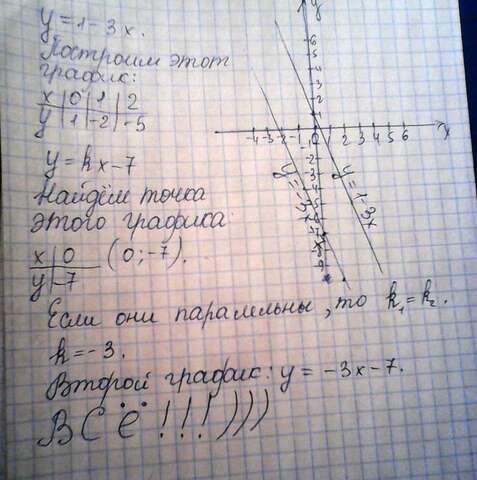 y = 1 - 3x.
Построим этот
график:
x | 0 | 1 | 2
y | 1 | -2 | -5
y = kx - 7
Найдём точка
этого графика
x | 0 (0; -7).
y | -7
Если они паралельны, то k₁ = k₂.
k = -3.
Второй график: y = -3x - 7.
ВСЁ!!!)))
y
6
5
4
3
2
1
-4 -3 -2 -1 0 1 2 3 4 5 6 x
y = 1 - 3x